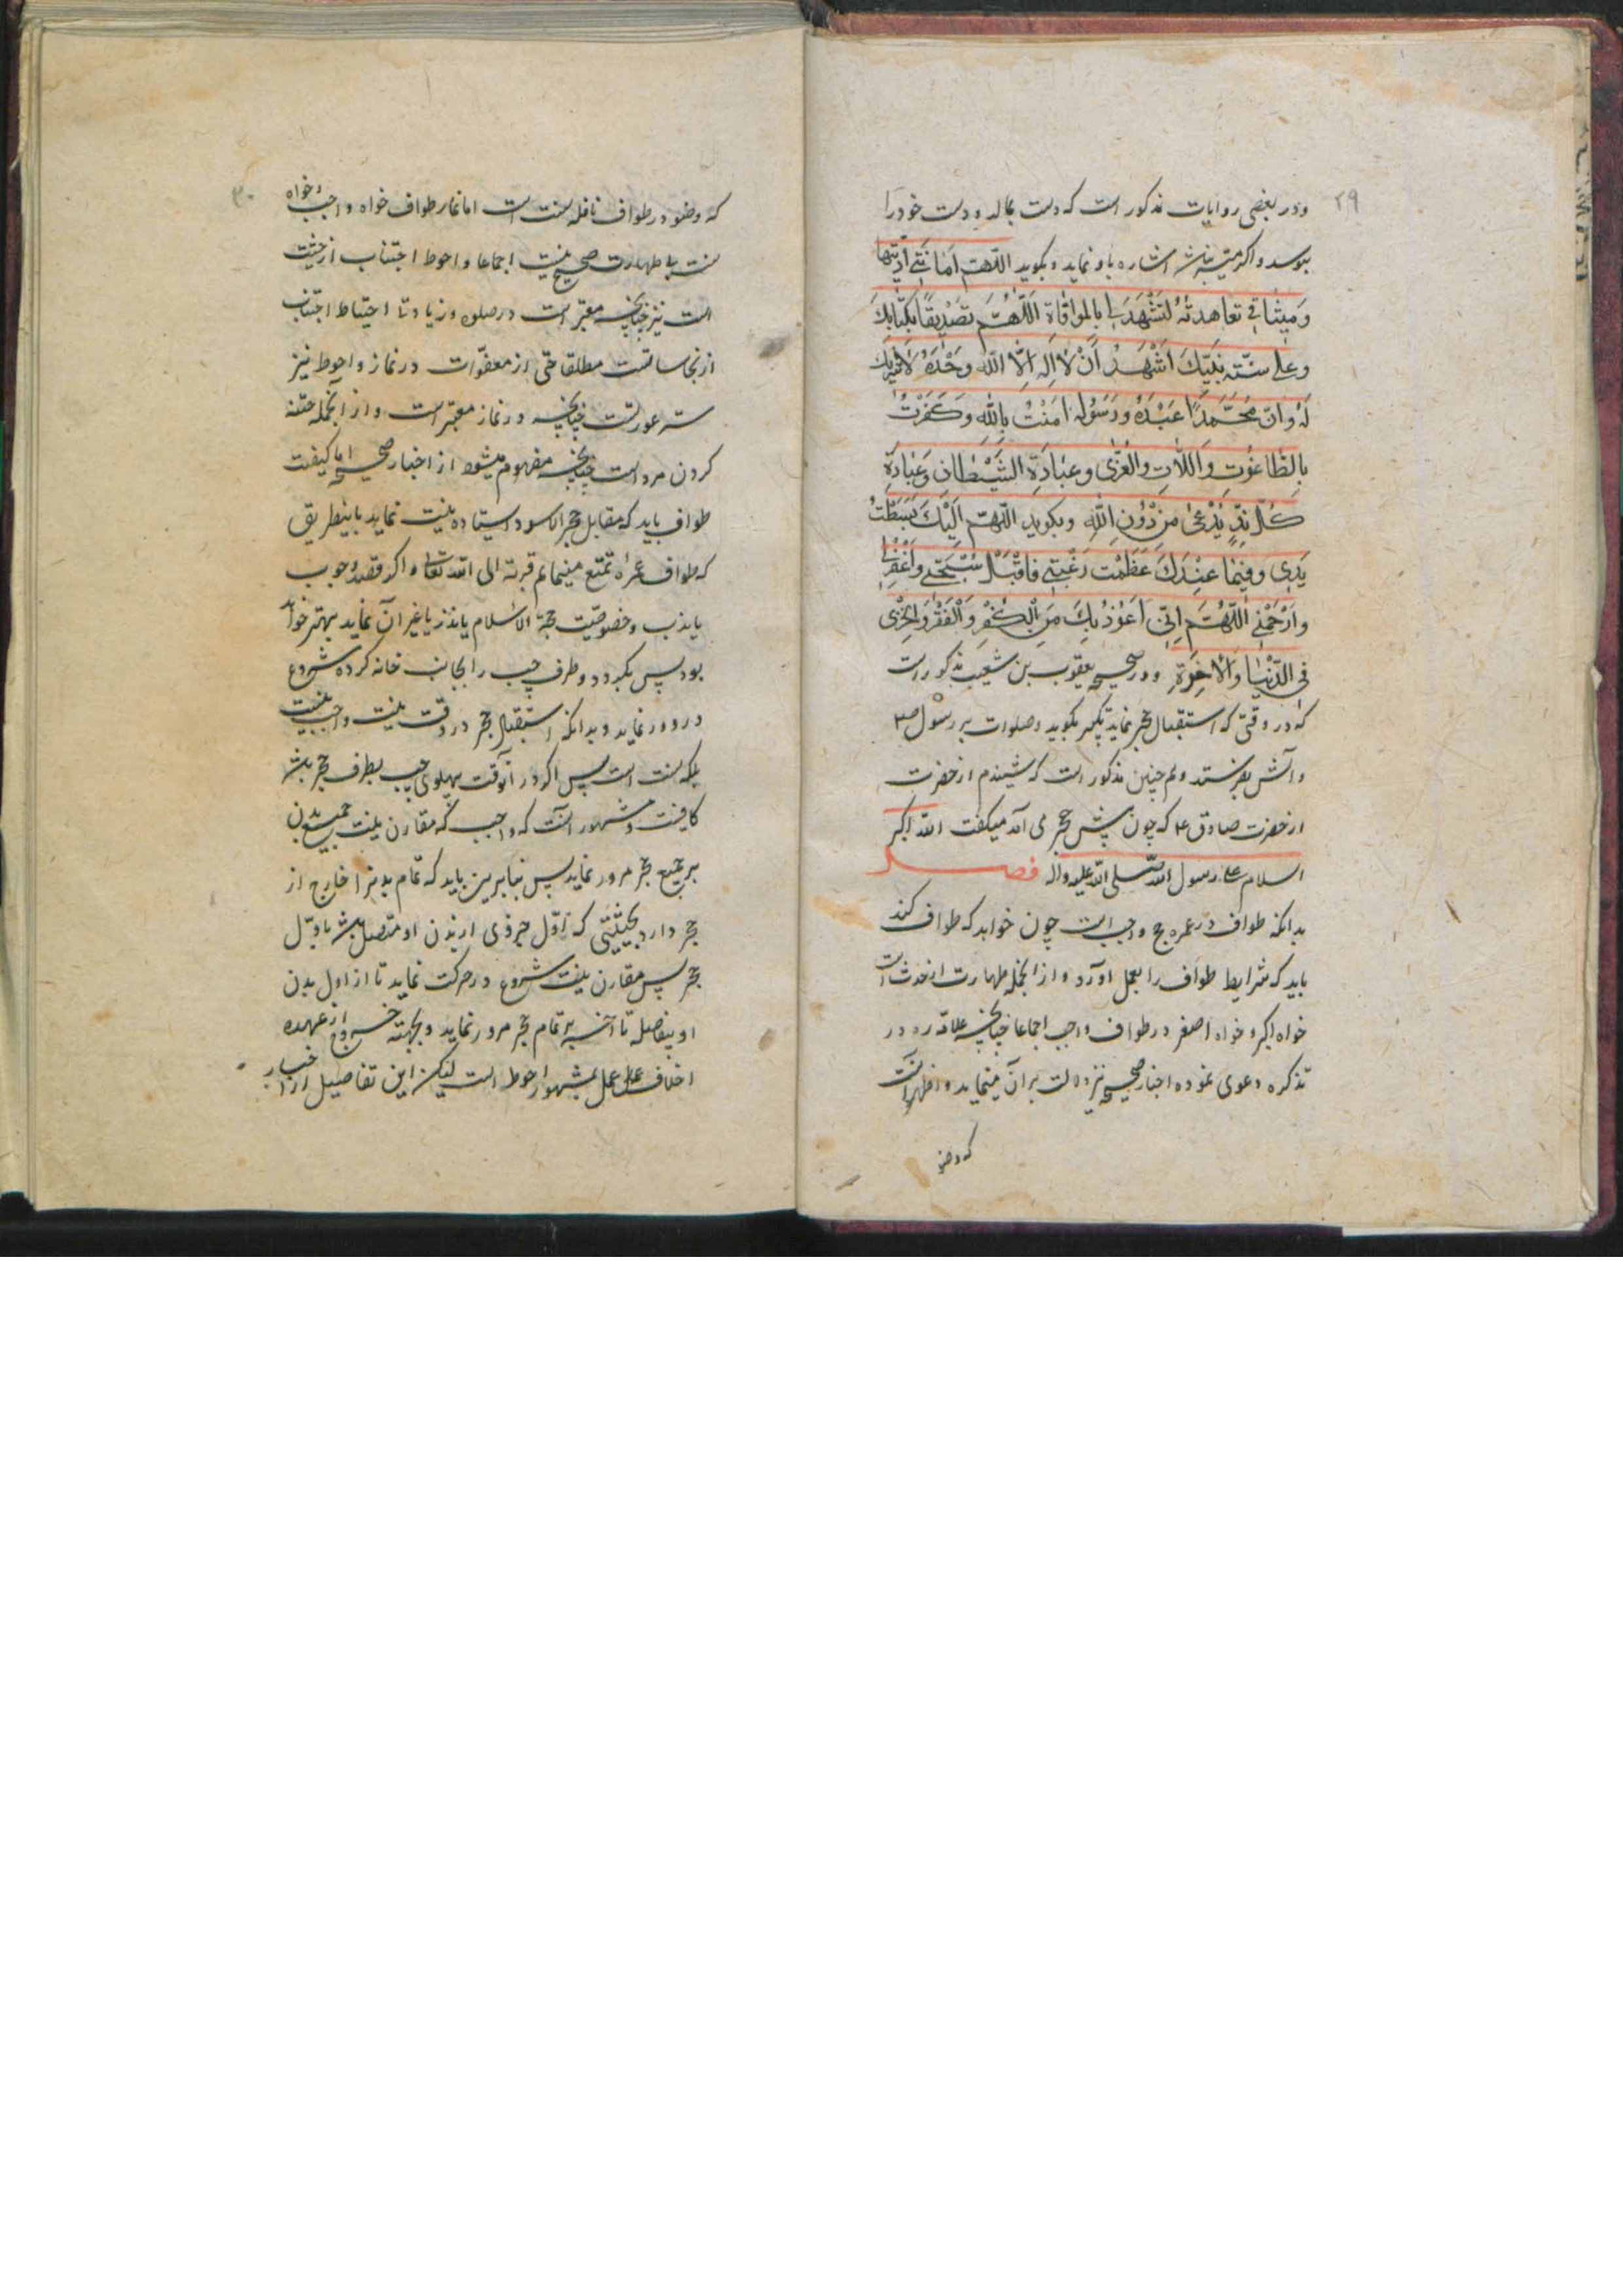 ۲۹
ودر بعضی روایات مذکور است که دست بمالد و دست خود را
ببوسد و اگر میسر نباشد اشاره باو نماید و بگوید اللّهمّ اَمانَتی اَدَّیتُها
وَ میثاقی تعاهدتُه لتَشْهَدَ لی بالموافاة اَللّهُمَّ تصدیقاً بکتابِکَ
و علی سنّة نبیّکَ اَشْهَدُ اَنْ لا اِله اِلّا اللّه وَحْدَهُ لا شریک
لَهُ و انّ مُحَمَّداً عَبْدُهُ و رَسُوله امَنْتُ باللّه وَ کَفَرْتُ
بِالطّاغُوتِ وَ اللّاتِ والعُزّی و عِبادَةِ الشَّیْطانِ وَ عِبادَةِ
کُلّ نِدٍّ یُدْعی مِنْ دُونِ اللّهِ و بگوید اللّهمّ اِلَیْکَ بَسَطْتُ
یَدی وَ فیما عِنْدَکَ عَظُمَتْ رَغْبَتی فَاقْبَلْ سُبْحَتی وَ اغْفِرْ لی
وَارْحَمْنی اَللّهُمَّ اِنّی اَعُوذُ بِکَ مِنَ الْکُفْرِ وَ الْفَقْرِ وَ الخِزْی
فی الدّنیا وَ الاخِرَةِ و در صحیحه یعقوب بن شعیب مذکور است
که در وقتی که استقبال حجر نماید تکبیر بگوید و صلوات بر رسول ص
و آلش بفرستد و همچنین مذکور است که شنیدم از حضرت
از حضرت صادق ع که چون پیش حجر می آمد میگفت اللّه اکبر
السلام علی رسول اللّه صلی اللّه علیه واله فصل
بدانکه طواف در عمره و حج واجب است چون خواهد که طواف کند
باید که شرایط طواف را بعمل اورد و از انجمله طهارت از حدث است
خواه اکبر و خواه اصغر در طواف واجب اجماعا چنانچه علامه ره در
تذکره دعوی نموده و اخبار صحیحه نیز دلالت بر ان مینماید و اظهر انست
که وضو
۳۰
که وضو در طواف نافله سنت است اما نماز طواف خواه واجب و خواه
سنت بی طهارت صحیح نیست اجماعا و احوط اجتناب از خبث
است نیز چنانچه معتبر است در صلوه و زیادتا احتیاط اجتناب
از نجاساتست مطلقا حتی از معفوات در نماز و احوط نیز
ستر عورتست چنانچه در نماز معتبر است و از انجمله ختنه
کردن مرد است چنانچه مفهوم میشود از اخبار صحیحه اما کیفیت
طواف باید که مقابل حجر الاسود ایستاده نیت نماید باینطریق
که طواف عمرهٔ تمتع مینمایم قربة الی اللّه تعالی و اگر قصد وجوب
یا ندب و خصوصیت حجة الاسلام یا نذر یا غیر آن نماید بهتر خواهد
بود پس بگردد و طرف چپ را بجانب خانه کرده شروع
در دور نماید و بدانکه استقبال حجر در وقت نیت واجب نیست
بلکه سنت است پس اگر در آنوقت پهلوی چپ بطرف حجر باشد
کافیست و مشهور آنست که واجب که مقارن نیت بجمیع بدن
بر جمیع حجر مرور نماید پس بنابرین باید که تمام بدنرا خارج از
حجر دارد بحیثیتی که اول جزوی از بدن او متصل باشد باول
حجر پس مقارن نیت شروع در حرکت نماید تا از اول بدن
او بفاصله تا آخر بر تمام حجر مرور نماید و بجهته خروج از عهده
اخلاف عمل بمشهور احوط است لیکن این تفاصیل از اخبار